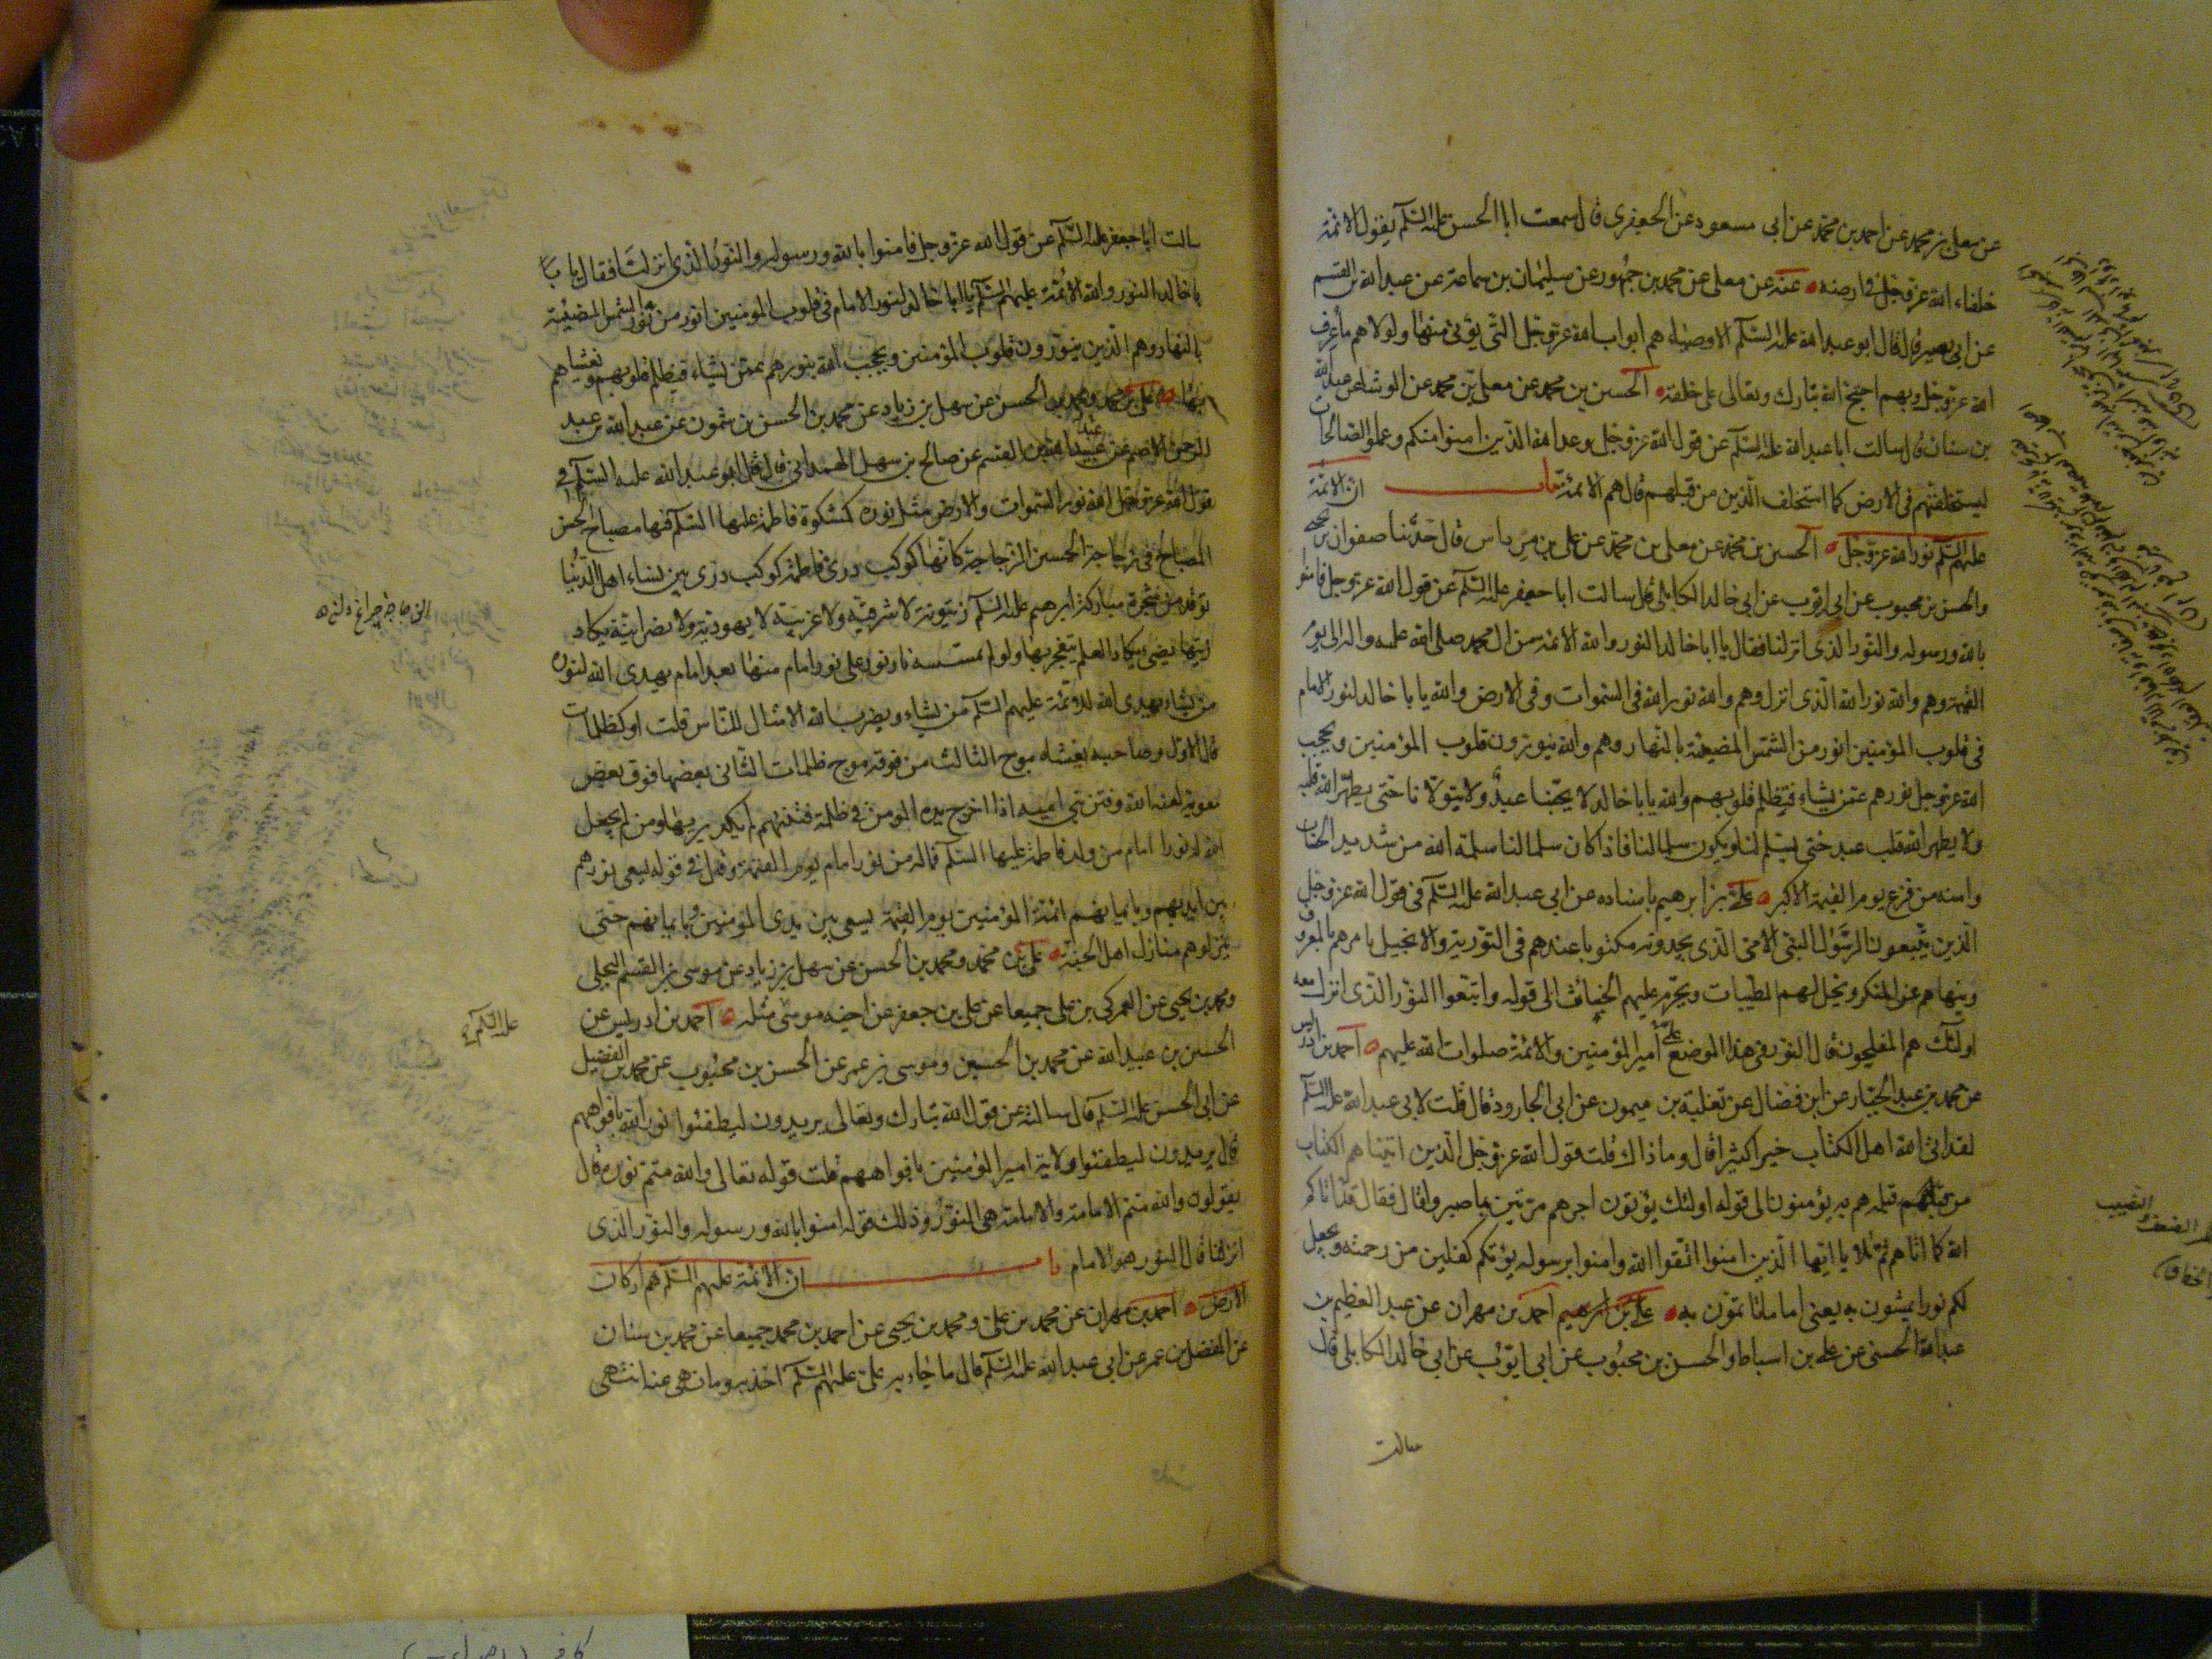 عن معلى بن محمد عن احمد بن محمد عن ابى مسعود عن الجعفرى قال سمعت ابا الحسن عليه السلم يقول الائمة
خلفاء الله عز وجل فى ارضه عنه عن معلى عن محمد بن جمهور عن سليمان بن سماعة عن عبد الله بن القسم
عن ابى بصير قال قال ابو عبد الله عليه السلم الاوصياء هم ابواب الله عز وجل التى يؤتى منها ولولاهم ما عرف
الله عز وجل وبهم احتج الله تبارك وتعالى على خلقه الحسين بن محمد عن معلى بن محمد عن الوشاء عن عبد الله
بن سنان قال سالت ابا عبد الله عليه السلم عن قول الله عز وجل وعد الله الذين امنوا منكم وعملوا الصالحات
ليستخلفنهم فى الارض كما استخلف الذين من قبلهم قال هم الائمة باب ان الائمة
عليهم السلم نور الله عز وجل الحسين بن محمد عن معلى بن محمد عن على بن مرداس قال حدثنا صفوان بن يحيى
والحسن بن محبوب عن ابى ايوب عن ابى خالد الكابلى قال سالت ابا جعفر عليه السلم عن قول الله عز وجل فامنوا
بالله ورسوله والنور الذى انزلنا فقال يا ابا خالد النور والله الائمة من ال محمد صلى الله عليه واله الى يوم
القيمة وهم والله نور الله الذى انزل وهم والله نور الله فى السموات وفى الارض والله يا با خالد لنور الامام
فى قلوب المؤمنين انور من الشمس المضيئة بالنهار وهم والله ينورون قلوب المؤمنين ويحجب
الله عز وجل نورهم عمن يشاء فتظلم قلوبهم والله يا با خالد لا يحبنا عبد ويتولانا حتى يطهر الله قلبه
ولا يطهر الله قلب عبد حتى يسلم لنا ويكون سلما لنا فاذا كان سلما لنا سلمه الله من شديد الحساب
وامنه من فزع يوم القيمة الاكبر على بن ابرهيم باسناده عن ابى عبد الله عليه السلم فى قول الله عز وجل
الذين يتبعون الرسول النبى الامى الذى يجدونه مكتوبا عندهم فى التورية والانجيل يامرهم بالمعروف
وينهاهم عن المنكر ويحل لهم الطيبات ويحرم عليهم الخبائث الى قوله واتبعوا النور الذى انزل معه
اولئك هم المفلحون قال النور فى هذا الموضع على امير المؤمنين والائمة صلوات الله عليهم احمد بن ادريس
عن محمد بن عبد الجبار عن ابن فضال عن ثعلبة بن ميمون عن ابى الجارود قال قلت لابى عبد الله عليه السلم
لقد اتى الله اهل الكتاب خيرا كثيرا قال وما ذاك قلت قول الله عز وجل الذين اتيناهم الكتاب
من قبله هم به يؤمنون الى قوله اولئك يؤتون اجرهم مرتين بما صبروا قال فقال قد اتاكم
الله كما اتاهم ثم تلا يا ايها الذين امنوا اتقوا الله وامنوا برسوله يؤتكم كفلين من رحمته ويجعل
لكم نورا تمشون به يعنى اماما تاتمون به على بن ابرهيم احمد بن مهران عن عبد العظيم بن
عبد الله الحسنى عن على بن اسباط والحسن بن محبوب عن ابى ايوب عن ابى خالد الكابلى قال
سالت
سالت ابا جعفر عليه السلم عن قول الله عز وجل فامنوا بالله ورسوله والنور الذى انزلنا فقال يا با
يا خالد النور والله الائمة عليهم السلم يا ابا خالد لنور الامام فى قلوب المؤمنين انور من نور الشمس المضيئة
بالنهار وهم الذين ينورون قلوب المؤمنين ويحجب الله نورهم عمن يشاء فتظلم قلوبهم ويغشاهم
بها على بن محمد ومحمد بن الحسن عن سهل بن زياد عن محمد بن الحسن بن شمون عن عبد الله بن عبد
الرحمن الاصم عن عبد الله بن القسم عن صالح بن سهل الهمدانى قال قال ابو عبد الله عليه السلم فى
قول الله عز وجل الله نور السموات والارض مثل نوره كمشكوة فاطمة عليها السلم فيها مصباح الحسن
المصباح فى زجاجة الحسين الزجاجة كانها كوكب درى فاطمة كوكب درى بين نساء اهل الدنيا
توقد من شجرة مباركة ابرهيم عليه السلم زيتونة لا شرقية ولا غربية لا يهودية ولا نصرانية يكاد
زيتها يضئ يكاد العلم ينفجر بها ولو لم تمسسه نار نور على نور امام منها بعد امام يهدى الله لنوره
من يشاء يهدى الله للائمة عليهم السلم من يشاء ويضرب الله الامثال للناس قلت او كظلمات
قال الاول وصاحبه يغشاه موج الثالث من فوقه موج ظلمات الثانى بعضها فوق بعض
معوية لعنه الله وفتن بنى امية اذا اخرج يده المؤمن فى ظلمة فتنتهم لم يكد يريها ومن لم يجعل
الله له نورا امام من ولد فاطمة عليها السلم فماله من نور امام يوم القيمة وقال فى قوله يسعى نورهم
بين ايديهم وبايمانهم ائمة المؤمنين يوم القيمة يسعى بين يدى المؤمنين وبايمانهم حتى
ينزلوهم منازل اهل الجنة على بن محمد ومحمد بن الحسن عن سهل بن زياد عن موسى بن القسم البجلى
ومحمد بن يحيى عن العمركى بن على جميعا عن على بن جعفر عن اخيه موسى مثله احمد بن ادريس عن
الحسين بن عبيد الله عن محمد بن الحسين وموسى بن عمر عن الحسن بن محبوب عن محمد بن الفضيل
عن ابى الحسن عليه السلم قال سالته عن قول الله تبارك وتعالى يريدون ليطفئوا نور الله بافواههم
قال يريدون ليطفئوا ولاية امير المؤمنين بافواههم قلت قوله تعالى والله متم نوره قال
يقولون والله متم الامامة والامامة هى النور وذلك قوله امنوا بالله ورسوله والنور الذى
انزلنا قال النور هو الامام باب ان الائمة عليهم السلم هم اركان
الارض احمد بن مهران عن محمد بن على ومحمد بن يحيى عن احمد بن محمد جميعا عن محمد بن سنان
عن المفضل بن عمر عن ابى عبد الله عليه السلم قال ما جاء به على عليه السلم اخذ به وما نهى عنه انتهى
عليه السلم